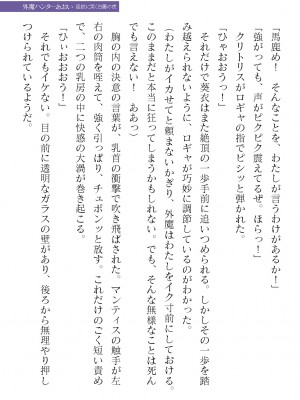 外魔ハンターあおい
「馬鹿め！　そんなことを、わたしが言うわけがあるか！」
「強がっても、声がピクピク震えてるぜ。ほらっ！」
クリトリスがロギャの指でピシッと弾かれた。
「ひゃおおうっ！」
それだけで葵衣はまた絶頂の一歩手前に追いつめられる。しかしその一歩を踏
み越えられないように、ロギャが巧妙に調節しているのがわかった。
（わたしがイカせてと頼まないかぎり、外魔はわたしをイク寸前にしておける。
このままだと本当に狂ってしまうかもしれない。でも、そんな無様なことは死ん
でも言えない！　ああっ）
胸の内の決意の言葉が、乳首の衝撃で吹き飛ばされた。マンティスの触手が左
右の肉筒を咥えて、強く引っぱり、チュポンッと放す。これだけのごく短い責め
で、二つの乳房の中に快感の大渦が巻き起こる。
「ひぃおおおう！」
それでもイケない。目の前に透明なガラスの壁があり、後ろから無理やり押し
つけられているようだ。